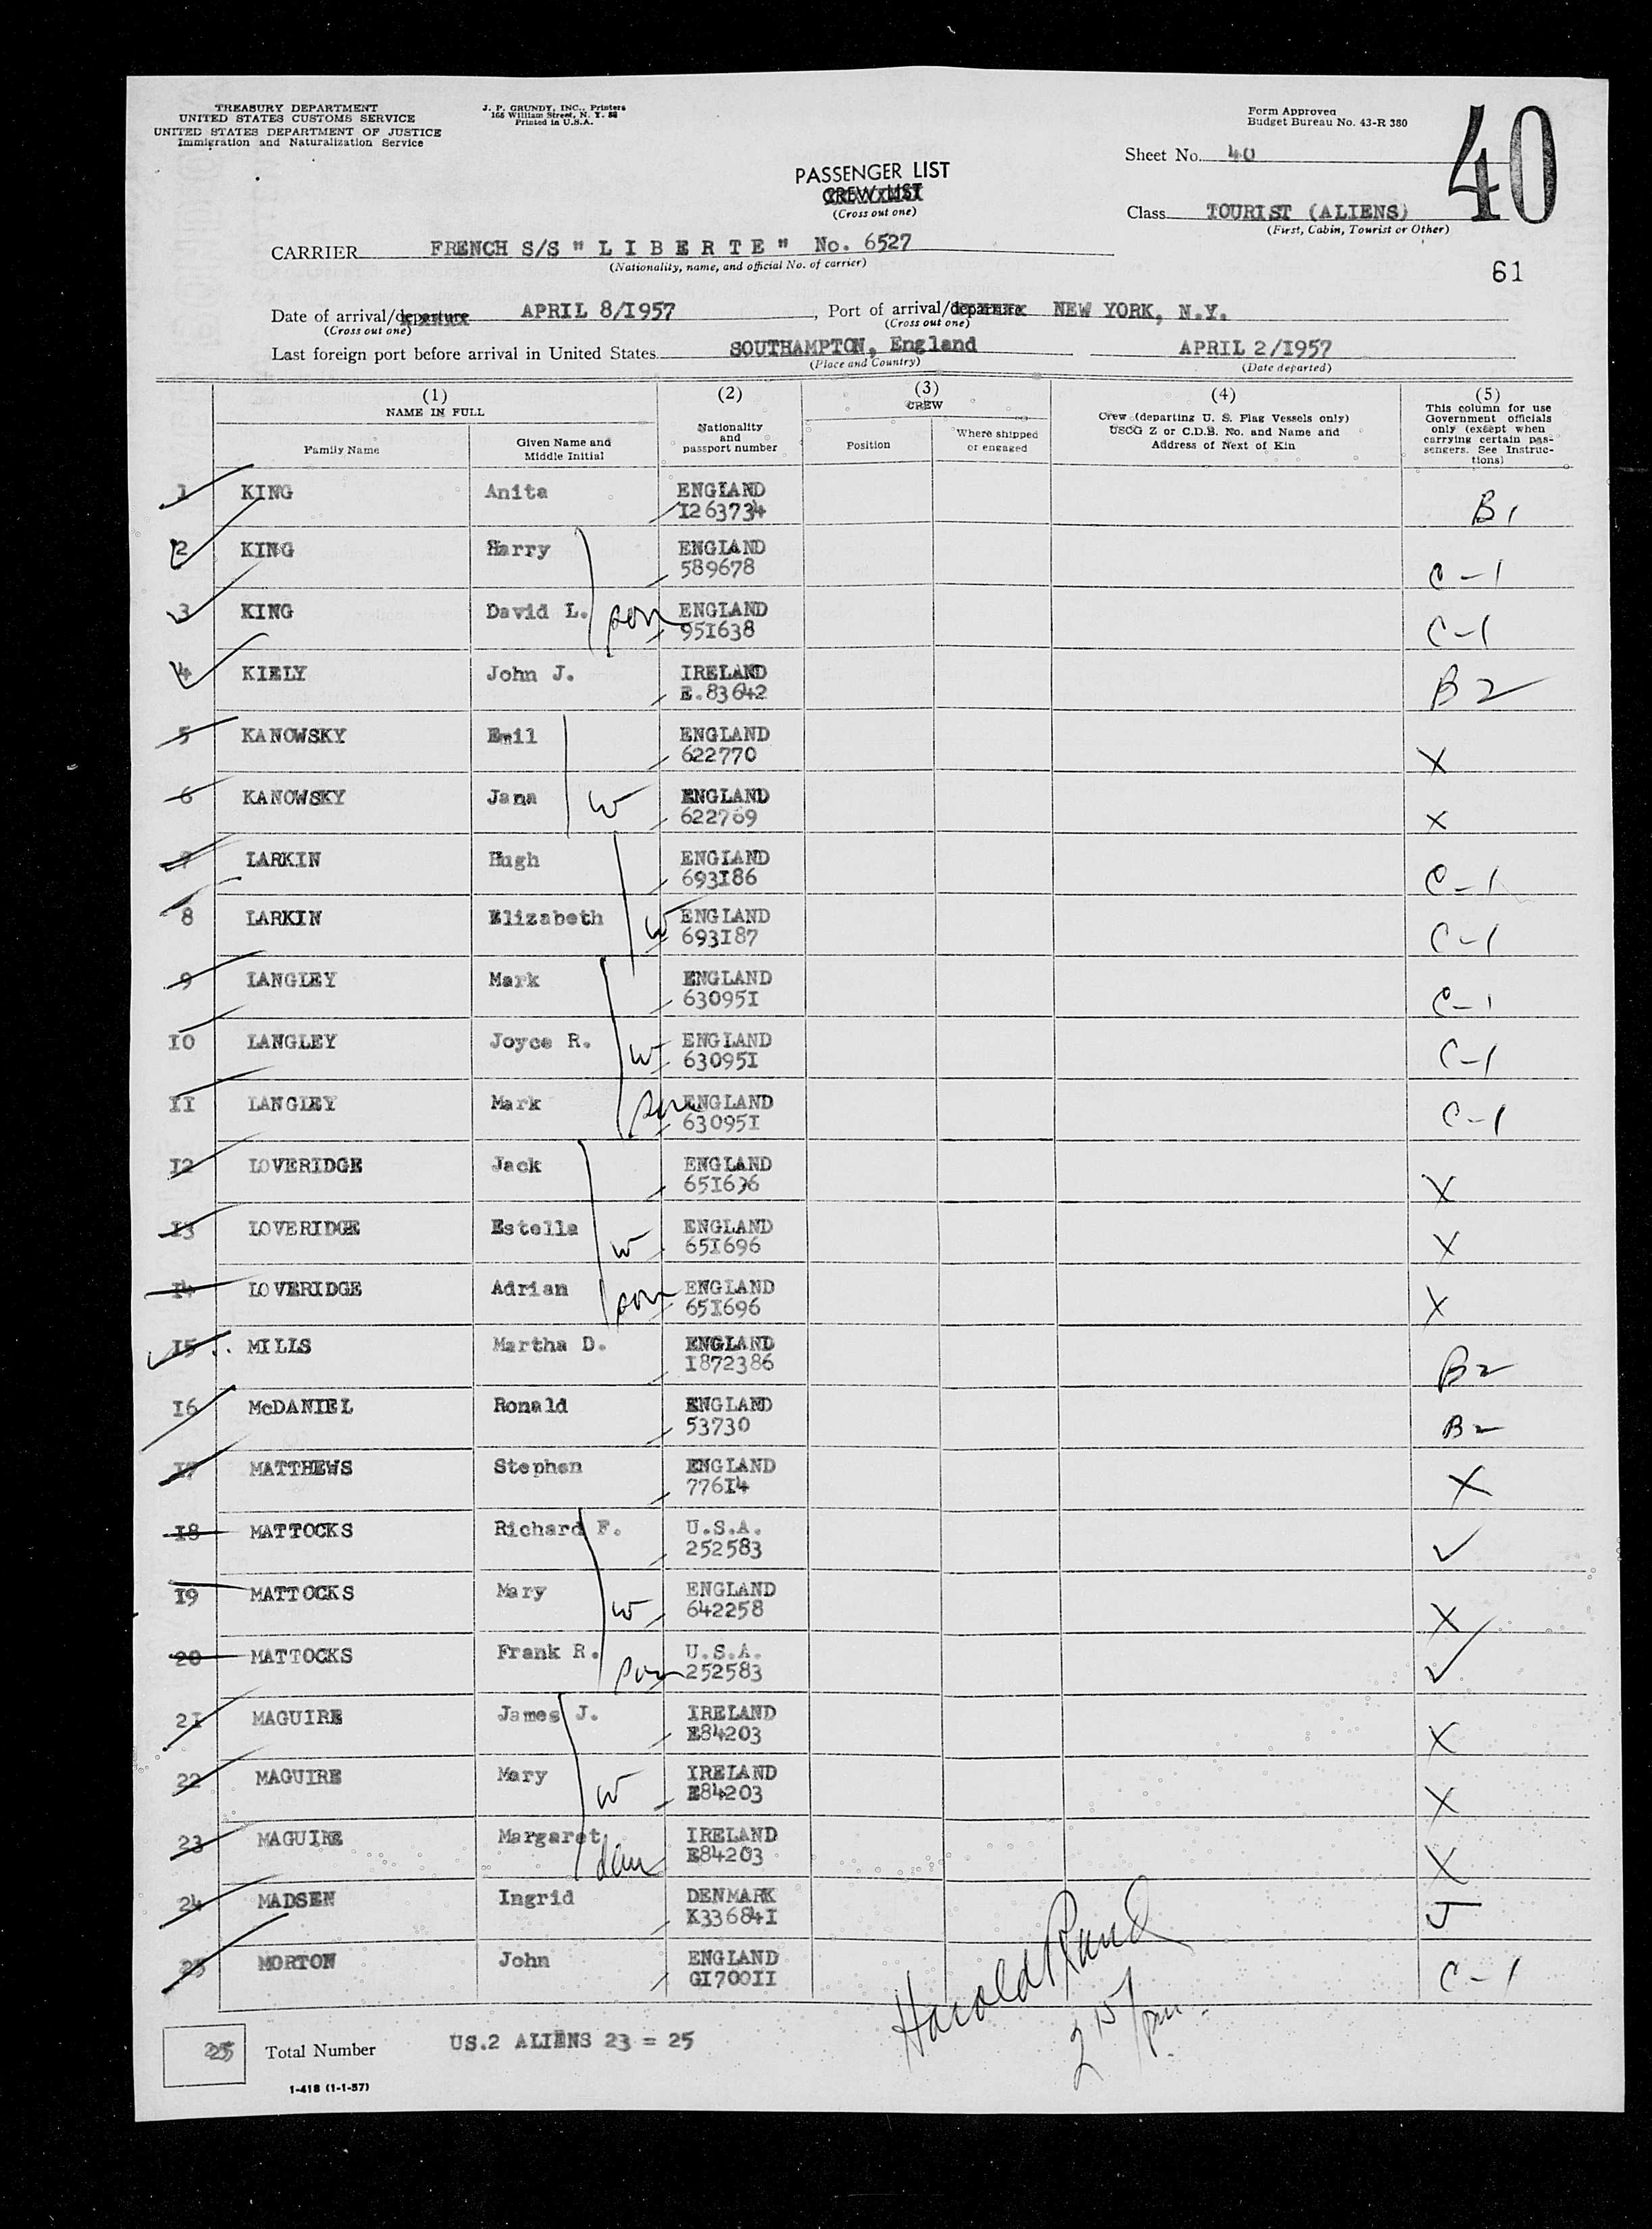 TREASURY DEPARTMENT
UNITED STATES CUSTOMS SERVICE
UNITED STATES DEPARTMENT OF JUSTICE
Immigration and Naturalization Service
J. P. GRUNDY, INC., Printers
165 William Street, N. Y. 38
Printed in U.S.A.
Form Approved
Budget Bureau No. 43-R 380
40
Sheet No. 40
PASSENGER LIST
CREW LIST
(Cross out one)
Class TOURIST (ALIENS)
(First, Cabin, Tourist or Other)
CARRIER FRENCH S/S " L I B E R T E " No. 6527
(Nationality, name, and official No. of carrier)
61
Date of arrival/departure APRIL 8/I957, Port of arrival/departure NEW YORK, N.Y.
(Cross out one) (Cross out one)
Last foreign port before arrival in United States SOUTHAMPTON, England APRIL 2/I957
(Place and Country) (Date departed)
(1) (2) (3) (4) (5)
NAME IN FULL
Family Name
Given Name and Middle Initial
Nationality and passport number
CREW
Position
Where shipped or engaged
Crew (departing U. S. Flag Vessels only)
USCG Z or C.D.B. No. and Name and
Address of Next of Kin
This column for use
Government officials
only (except when
carrying certain pas-
sengers. See Instruc-
tions)
1 KING Anita ENGLAND
I263734 B1
2 KING Harry ENGLAND
589678 C-1
3 KING David L. son ENGLAND
95I638 C-1
4 KIELY John J. IRELAND
E.83642 B2
5 KANOWSKY Emil ENGLAND
622770 X
6 KANOWSKY Jana W ENGLAND
622769 X
7 LARKIN Hugh ENGLAND
693I86 C-1
8 LARKIN Elizabeth W ENGLAND
693I87 C-1
9 LANGLEY Mark ENGLAND
63095I C-1
I0 LANGLEY Joyce R. W ENGLAND
63095I C-1
II LANGLEY Mark son ENGLAND
63095I C-1
I2 LOVERIDGE Jack ENGLAND
65I696 X
I3 LOVERIDGE Estella W ENGLAND
65I696 X
I4 LOVERIDGE Adrian son ENGLAND
65I696 X
I5 MILLS Martha D. ENGLAND
I872386 B2
I6 McDANIEL Ronald ENGLAND
53730 B2
I7 MATTHEWS Stephen ENGLAND
776I4 X
I8 MATTOCKS Richard F. U.S.A.
252583
I9 MATTOCKS Mary W ENGLAND
642258 X
20 MATTOCKS Frank R. son U.S.A.
252583
2I MAGUIRE James J. IRELAND
E84203 X
22 MAGUIRE Mary W IRELAND
E84203 X
23 MAGUIRE Margaret dau IRELAND
E84203 X
24 MADSEN Ingrid DENMARK
K33684I J
25 MORTON John ENGLAND
GI700II C-1
Harold Rand
2 15/pm.
25 Total Number US.2 ALIENS 23 = 25
1-418 (1-1-57)